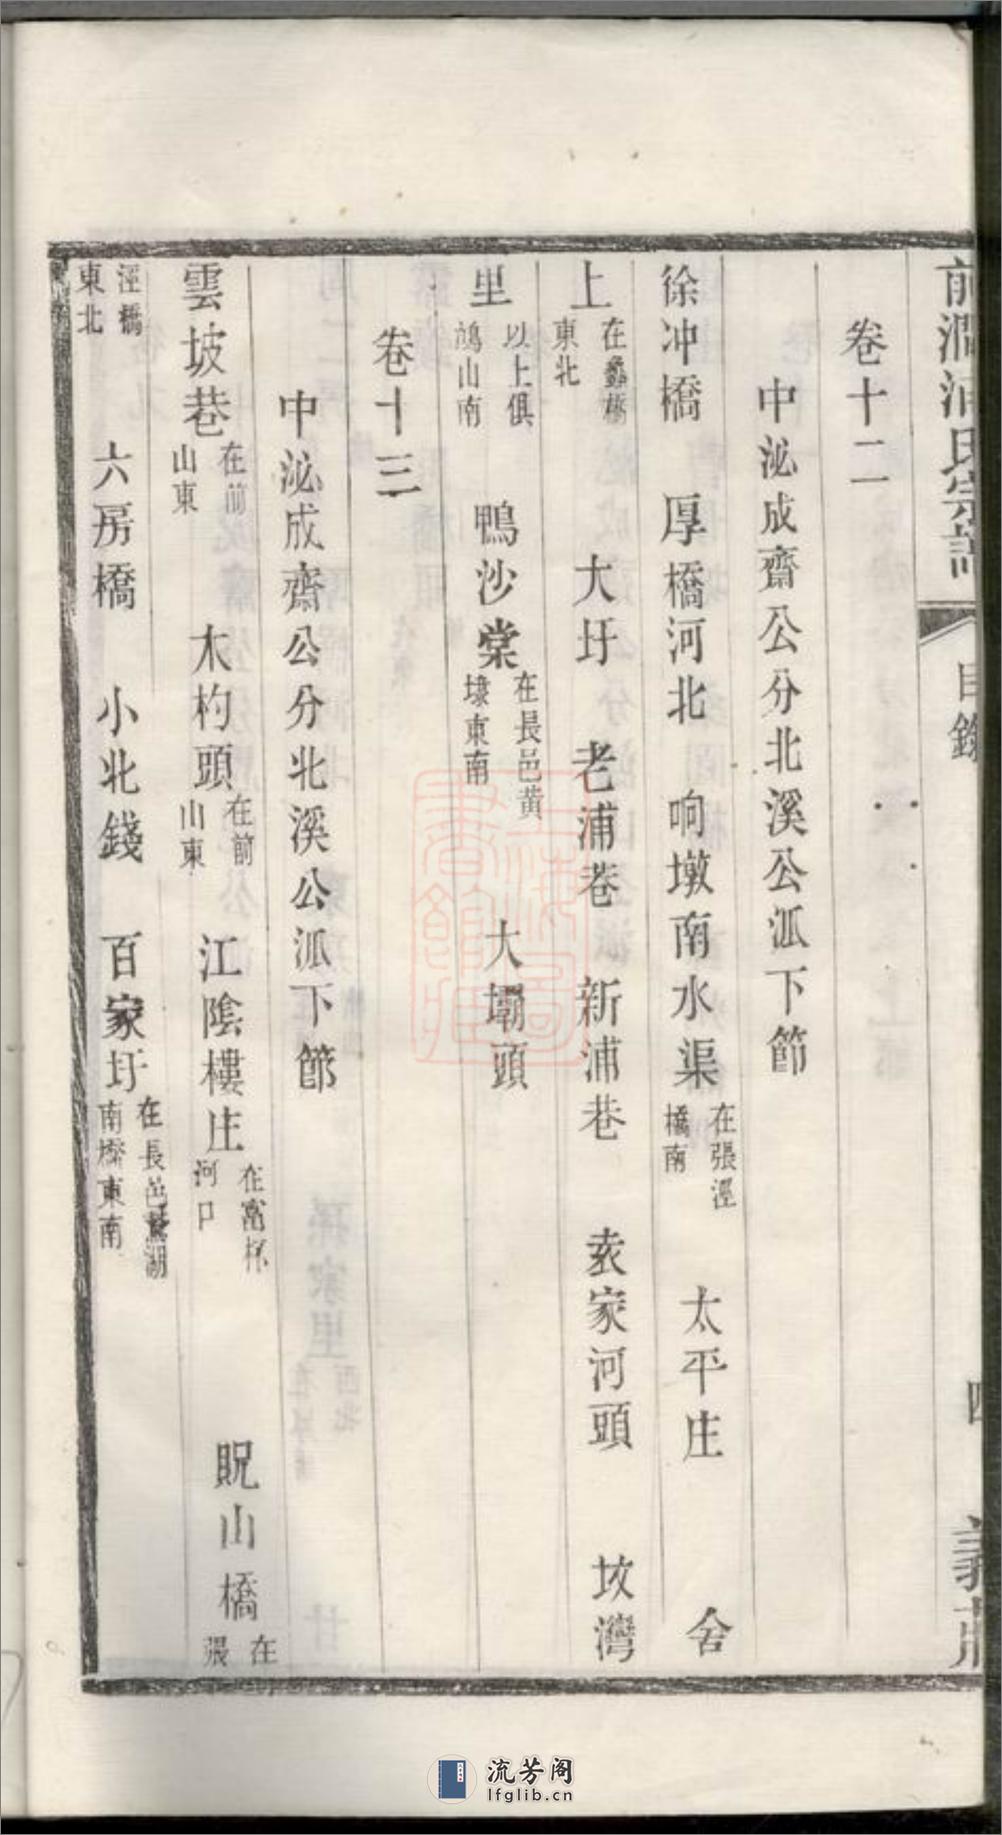 前澗浦氏宗譜 目錄 四 義庄
卷十二
中泌成齋公分北溪公派下節
徐冲橋 厚橋河北 响墩南水渠 在張涇橋南 太平庄 舍
上 在蠡𣿬東北 大圩 老浦巷 新浦巷 袁家河頭 坟灣
里 以上俱鴻山南 鴨沙棠 在長邑黄埭東南 大壩頭
卷十三
中泌成齋公分北溪公派下節
雲坡巷 在前山東 木杓頭 在前山東 江陰樓庄 在富杯河口 貺山橋 在張
涇橋東北 六房橋 小北錢 百家圩 在長邑鵞湖南橋東南
流芳阁
lfglib.cn